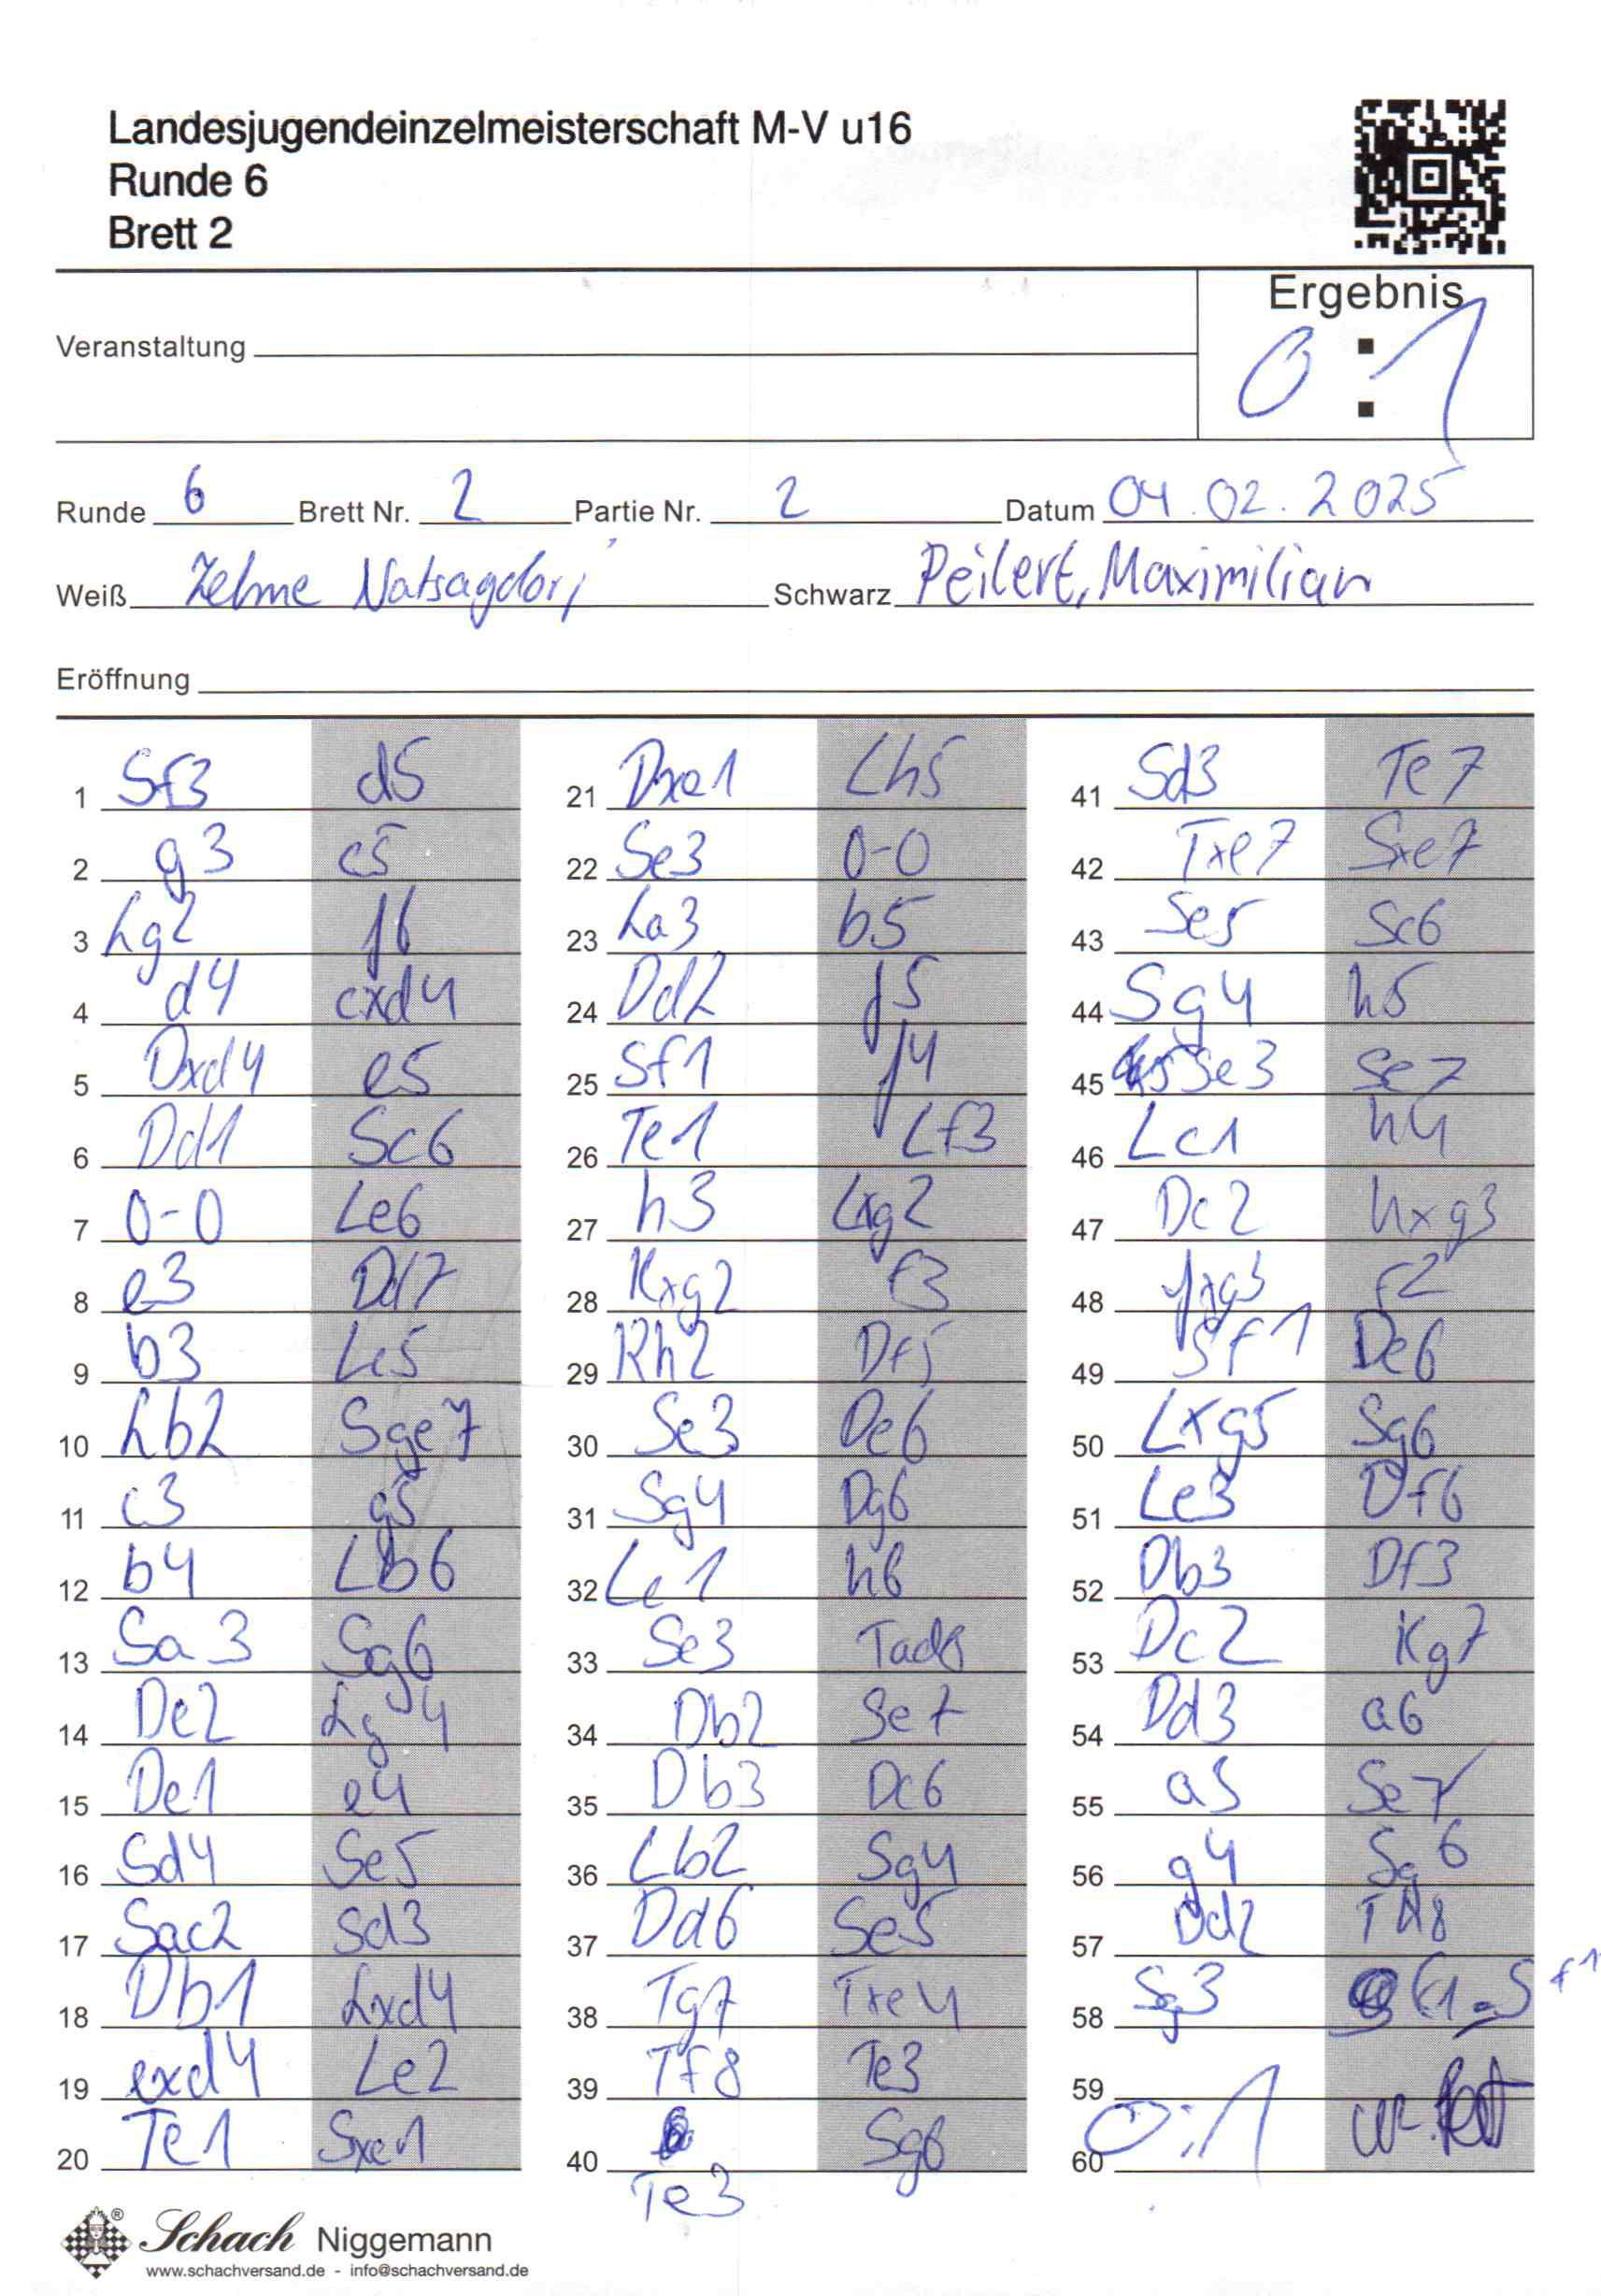 Landesjugendeinzelmeisterschaft M-V u16
Runde 6
Brett 2
Ergebnis
0:1
Veranstaltung
Runde 6 Brett Nr. 2 Partie Nr. 2 Datum 04.02.2025
Weiß Zelme Natsagdorj Schwarz Peilert, Maximilian
Eröffnung
1 Sf3 d5
2 g3 c5
3 Lg2 f6
4 d4 cxd4
5 Dxd4 e5
6 Dd1 Sc6
7 0-0 Le6
8 e3 Dd7
9 b3 Lc5
10 Lb2 Sge7
11 c3 g5
12 b4 Lb6
13 Sa3 Sg6
14 De2 Lg4
15 De1 e4
16 Sd4 Se5
17 Sac2 Sd3
18 Db1 Lxd4
19 exd4 Le2
20 Te1 Sxe1
21 Dxe1 Lh5
22 Se3 0-0
23 La3 b5
24 Dd2 f5
25 Sf1 f4
26 Te1 Lf3
27 h3 Lxg2
28 Kxg2 f3
29 Kh2 Df5
30 Se3 De6
31 Sg4 Dg6
32 Lc1 h6
33 Se3 Tad8
34 Db2 Se7
35 Db3 Dc6
36 Lb2 Sg4
37 Dd6 Se5
38 Tg7 Txe4
39 Tf8 Te3
40 Te3 Sg6
41 Sd3 Te7
42 Txe7 Sxe7
43 Se5 Sc6
44 Sg4 h5
45 Se3 Se7
46 Lc1 h4
47 Dc2 hxg3
48 fxg3 f2
49 Sf1 De6
50 Lxg5 Sg6
51 Le3 Df6
52 Db3 Df3
53 Dc2 Kg7
54 Dd3 a6
55 a5 Se7
56 g4 Sg6
57 Dd2 Th8
58 Sg3 Sf1
59
60 0:1
Schach Niggemann
www.schachversand.de - info@schachversand.de